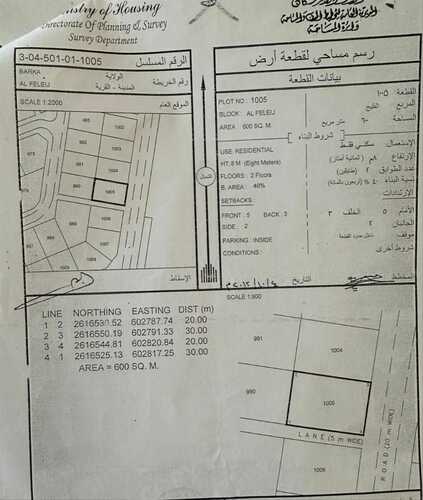 Ministry of Housing
Directorate of Planning & Survey
Survey Department
3-04-501-01-1005
الرقم المسلسل
BARKA
الولاية
AL FELEIJ
المدينة - القرية
رقم الخريطة
SCALE 1:2000
الموقع العام
1005
الإسقاط
رسم مساحي لقطعة أرض
بيانات القطعة
PLOT NO : 1005
القطعة
١٠٠٥
BLOCK : AL FELEIJ
المربع
الفليج
AREA : 600 SQ. M.
متر مربع
المساحة
شروط البناء
USE: RESIDENTIAL
الإستعمال
سكني فقط
HT: 8 M (Eight Meters)
الإرتفاع
FLOORS : 2 Floors
عدد الطوابق
B. AREA : 40%
نسبة البناء
SETBACKS:
الإرتدادات
FRONT : 5 BACK : 3
الأمام ٥ الخلف ٣
SIDE : 2
الجانبان ٢
PARKING : INSIDE
موقف
CONDITIONS :
شروط أخرى
التاريخ
المخطط
LINE NORTHING EASTING DIST (m)
1 2 2616530.52 602787.74 20.00
2 3 2616550.19 602791.33 30.00
3 4 2616544.81 602820.84 20.00
4 1 2616525.13 602817.25 30.00
AREA = 600 SQ. M.
991
1004
990
1005
LANE (5 m WIDE)
1006
ROAD (20 m WIDE)